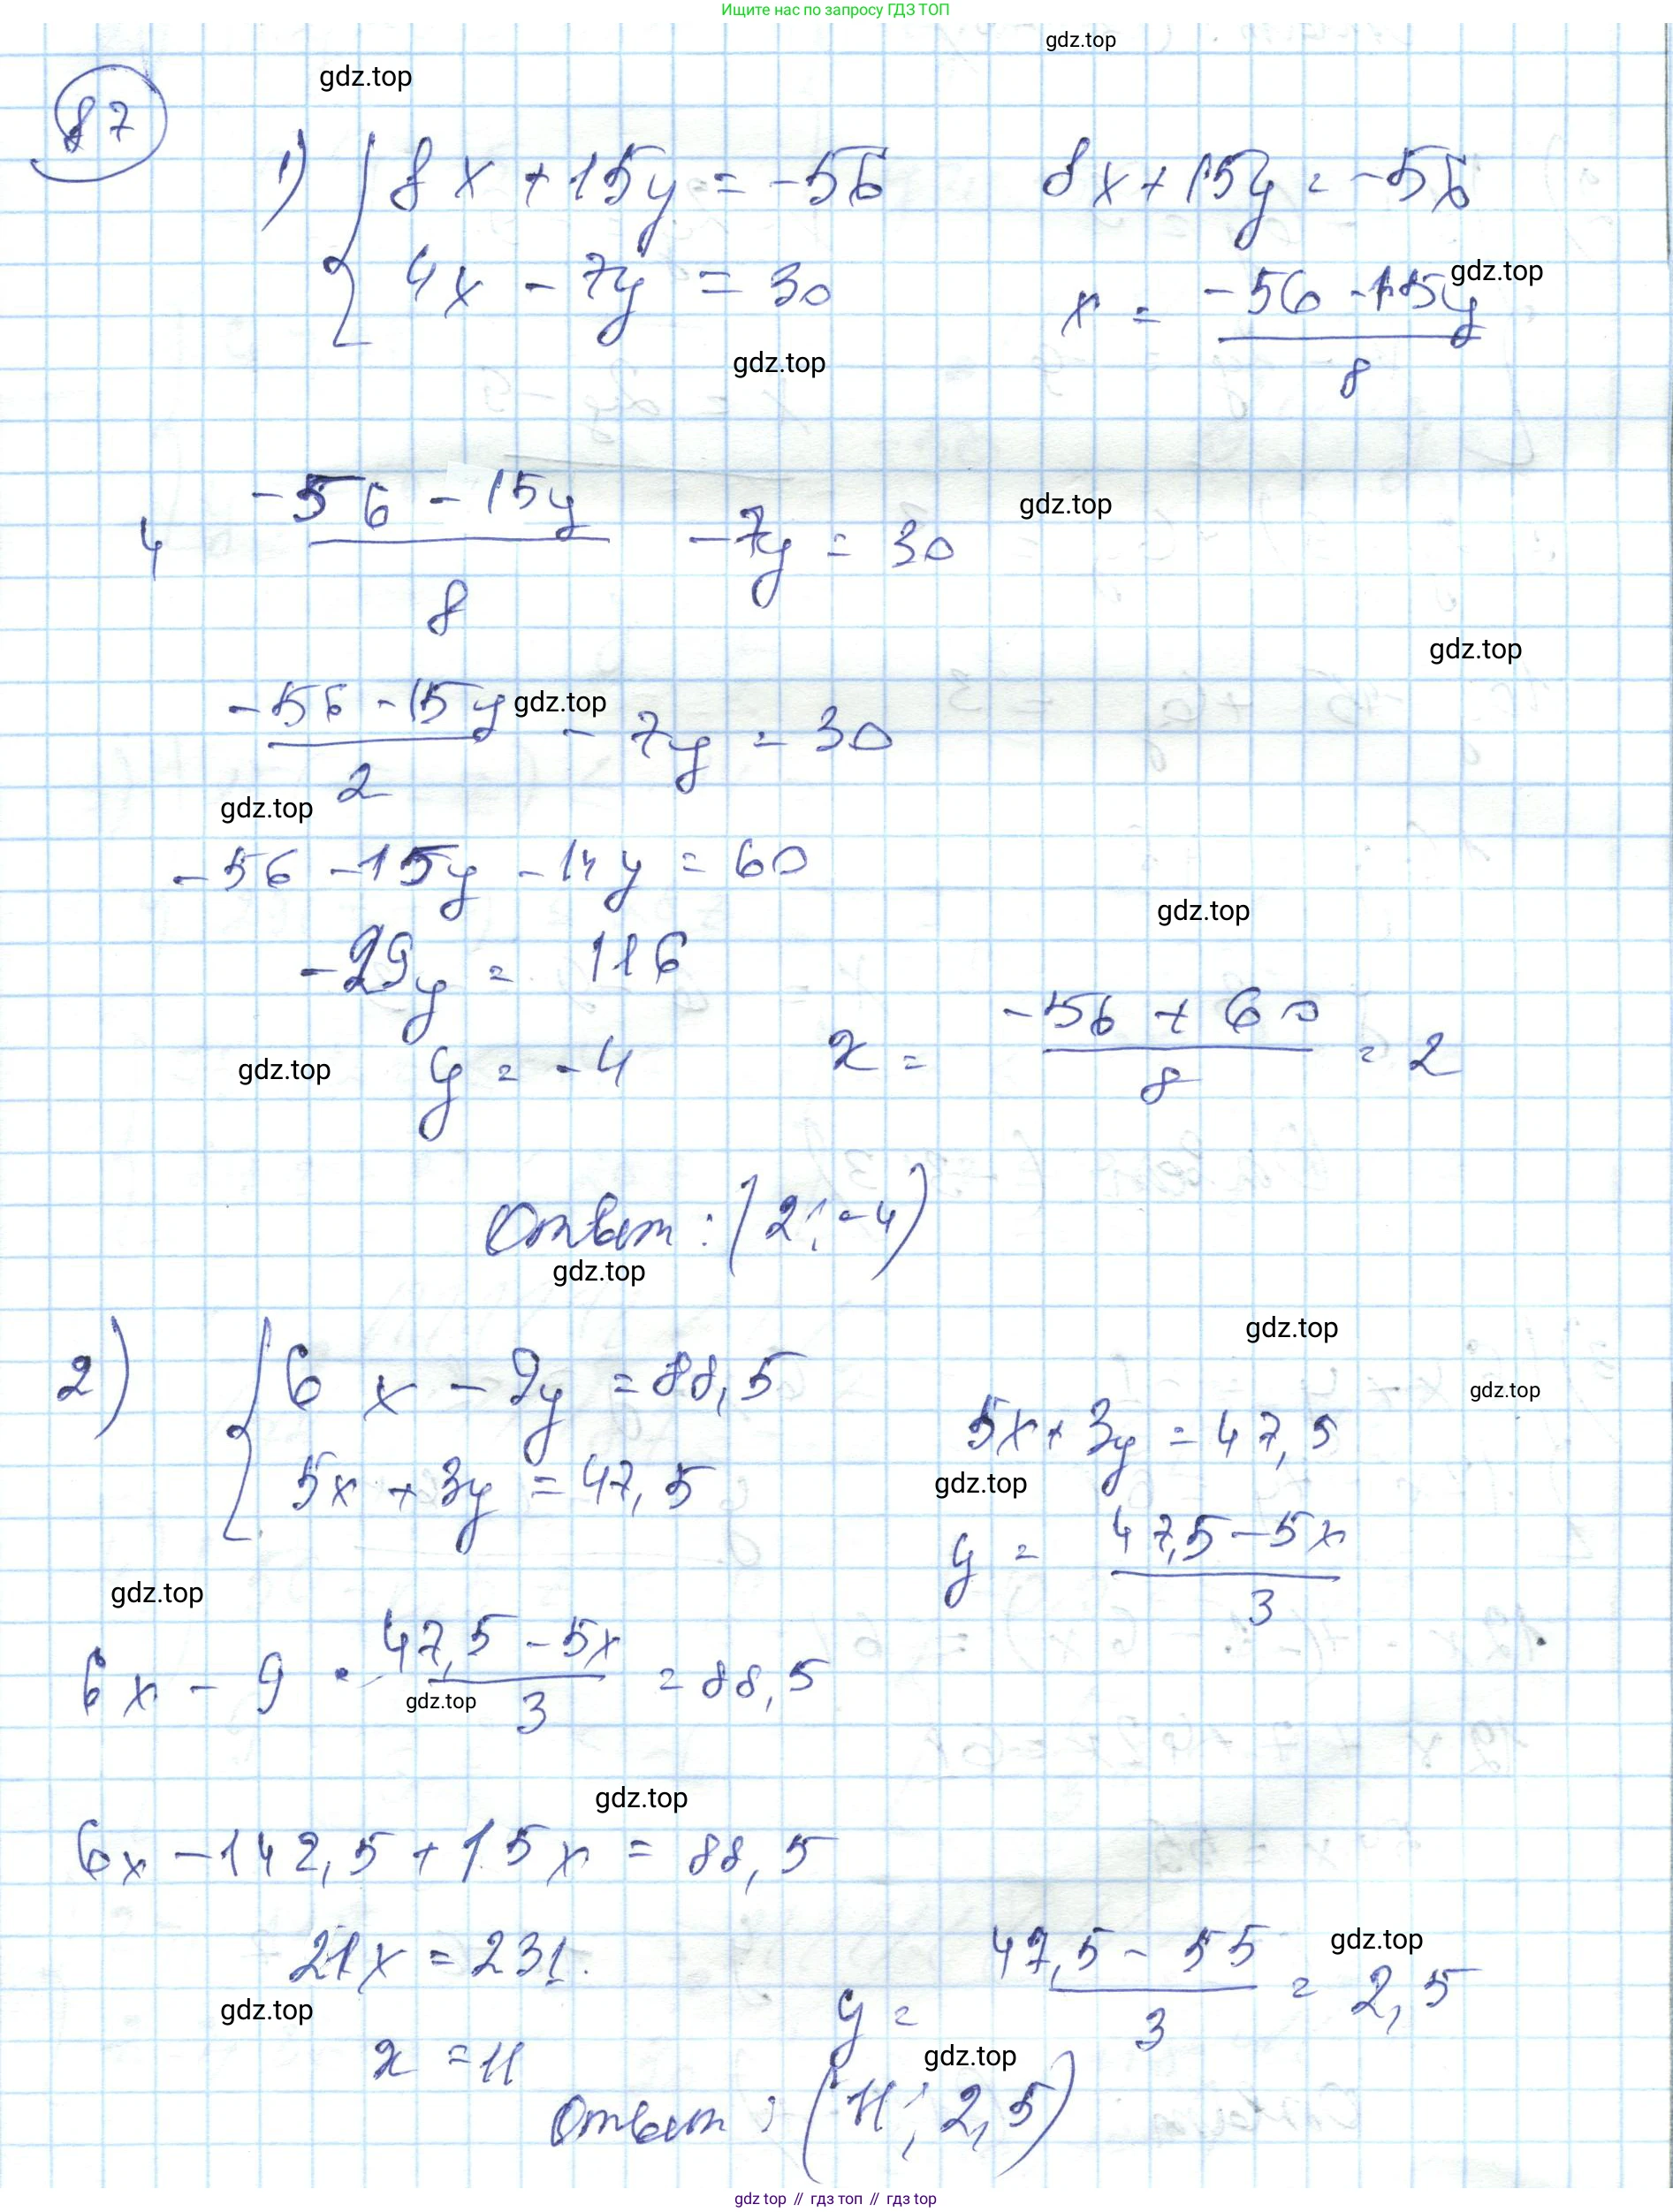 Ищите нас по запросу ГДЗ ТОП
gdz.top
87
gdz.top
1) { 8x + 15y = -56
8x + 15y = -56
4x - 7y = 30
gdz.top
x = (-56 - 15y)/8
gdz.top
4 (-56 - 15y)/8 - 7y = 30
gdz.top
gdz.top
(-56 - 15y)/2 - 7y = 30
gdz.top
gdz.top
-56 - 15y - 14y = 60
gdz.top
-29y = 116
gdz.top
y = -4
x = (-56 + 60)/8 = 2
Ответ: (2; -4)
gdz.top
gdz.top
2) { 6x - 9y = 88,5
gdz.top
5x + 3y = 47,5
5x + 3y = 47,5
gdz.top
y = (47,5 - 5x)/3
gdz.top
6x - 9 · (47,5 - 5x)/3 = 88,5
gdz.top
gdz.top
6x - 142,5 + 15x = 88,5
21x = 231.
gdz.top
y = (47,5 - 55)/3 = 2,5
gdz.top
x = 11
gdz.top
Ответ: (11; 2,5)
gdz top // гдз топ // gdz.top